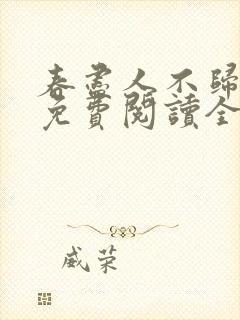 春盡人不歸
免費閱讀全
威荣